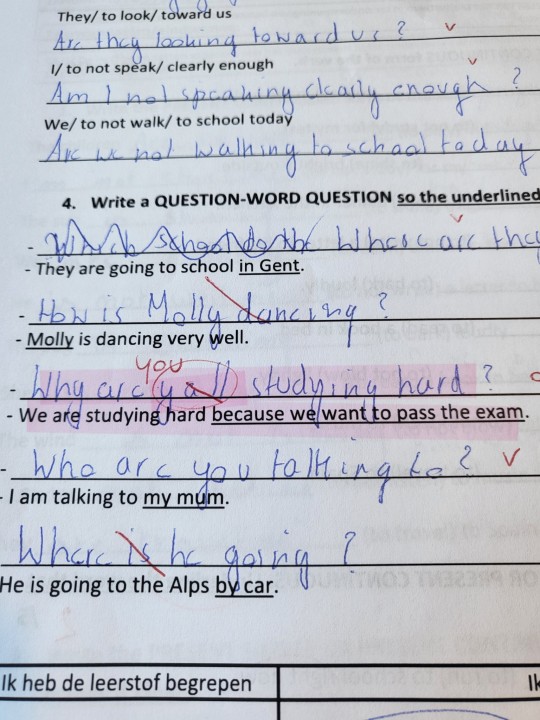 They/ to look/ toward us
Are they looking toward us?
I/ to not speak/ clearly enough
Am I not speaking clearly enough?
We/ to not walk/ to school today
Are we not walking to school today
4. Write a QUESTION-WORD QUESTION so the underlined
- Where are they
- They are going to school in Gent.
- How is Molly dancing?
- Molly is dancing very well.
you
Why are y'all studying hard?
- We are studying hard because we want to pass the exam.
- Who are you talking to?
- I am talking to my mum.
Where is he going?
He is going to the Alps by car.
Ik heb de leerstof begrepen Ik